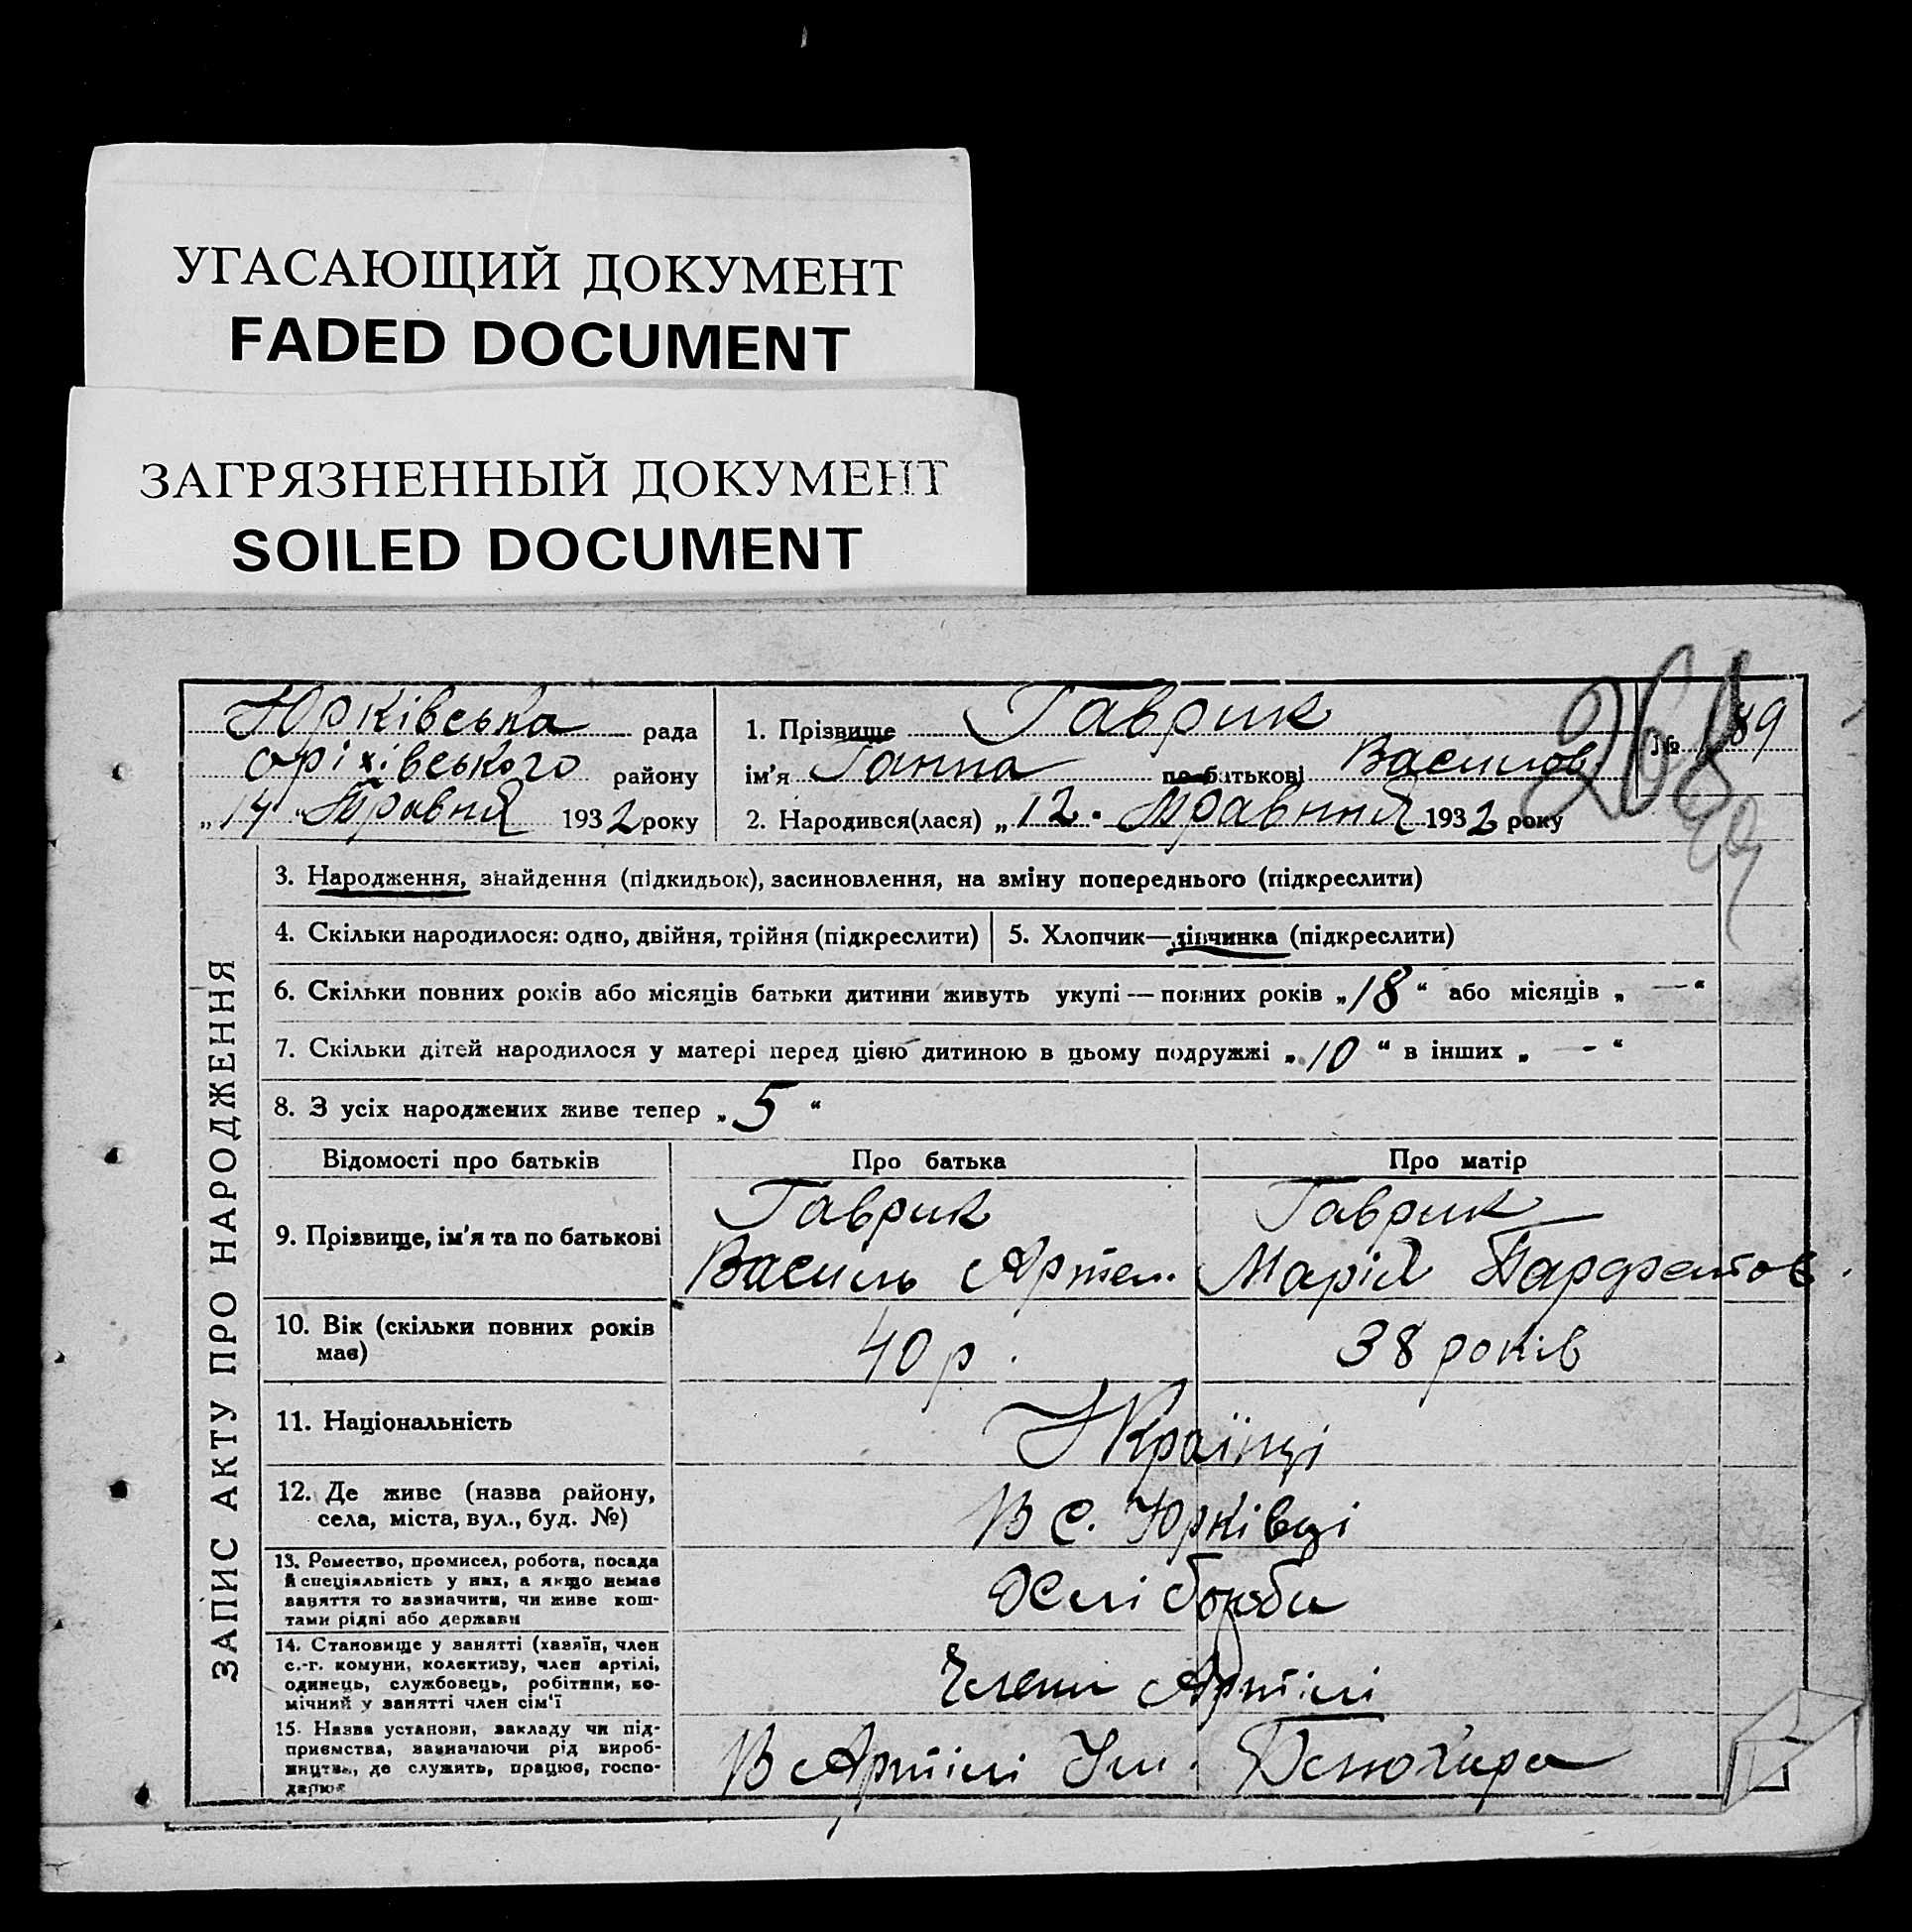 УГАСАЮЩИЙ ДОКУМЕНТ
FADED DOCUMENT
ЗАГРЯЗНЕННЫЙ ДОКУМЕНТ
SOILED DOCUMENT
Юрківська рада
оріхівського району
„14" Травня 1932 року
1. Прізвище Гаврик
ім'я Ганна по батькові Василов
№ 89
2. Народився(лася) „12. Травння 1932 року
ЗАПИС АКТУ ПРО НАРОДЖЕННЯ
3. Народження, знайдення (підкидьок), засиновлення, на зміну попереднього (підкреслити)
4. Скільки народилося: одно, двійня, трійня (підкреслити)
5. Хлопчик—дівчинка (підкреслити)
6. Скільки повних років або місяців батьки дитини живуть укупі — повних років „18“ або місяців „ —“
7. Скільки дітей народилося у матері перед цією дитиною в цьому подружжі „10“ в інших „ - “
8. З усіх народжених живе тепер „5“
Відомості про батьків Про батька Про матір
9. Прізвище, ім'я та по батькові
Гаврик
Василь Артем.
Гаврик
Марія Парфентов.
10. Вік (скільки повних років
має)
40 р.
38 років
11. Національність
Українці
12. Де живе (назва району,
села, міста, вул., буд. №)
В с. Юрківці
13. Ремество, промисел, робота, посада
й спеціяльність у них, а якщо немає
заняття то зазначити, чи живе кош-
тами рідні або держави
Хлібороби
14. Становище у занятті (хазяїн, член
с.-г. комуни, колективу, член артілі,
одинець, службовець, робітник, по-
мічний у занятті член сім'ї
Члени Артілі
15. Назва установи, закладу чи під-
приємства, зазначаючи рід вироб-
ництва, де служить, працює, госпо-
дарює
В Артілі Ім.